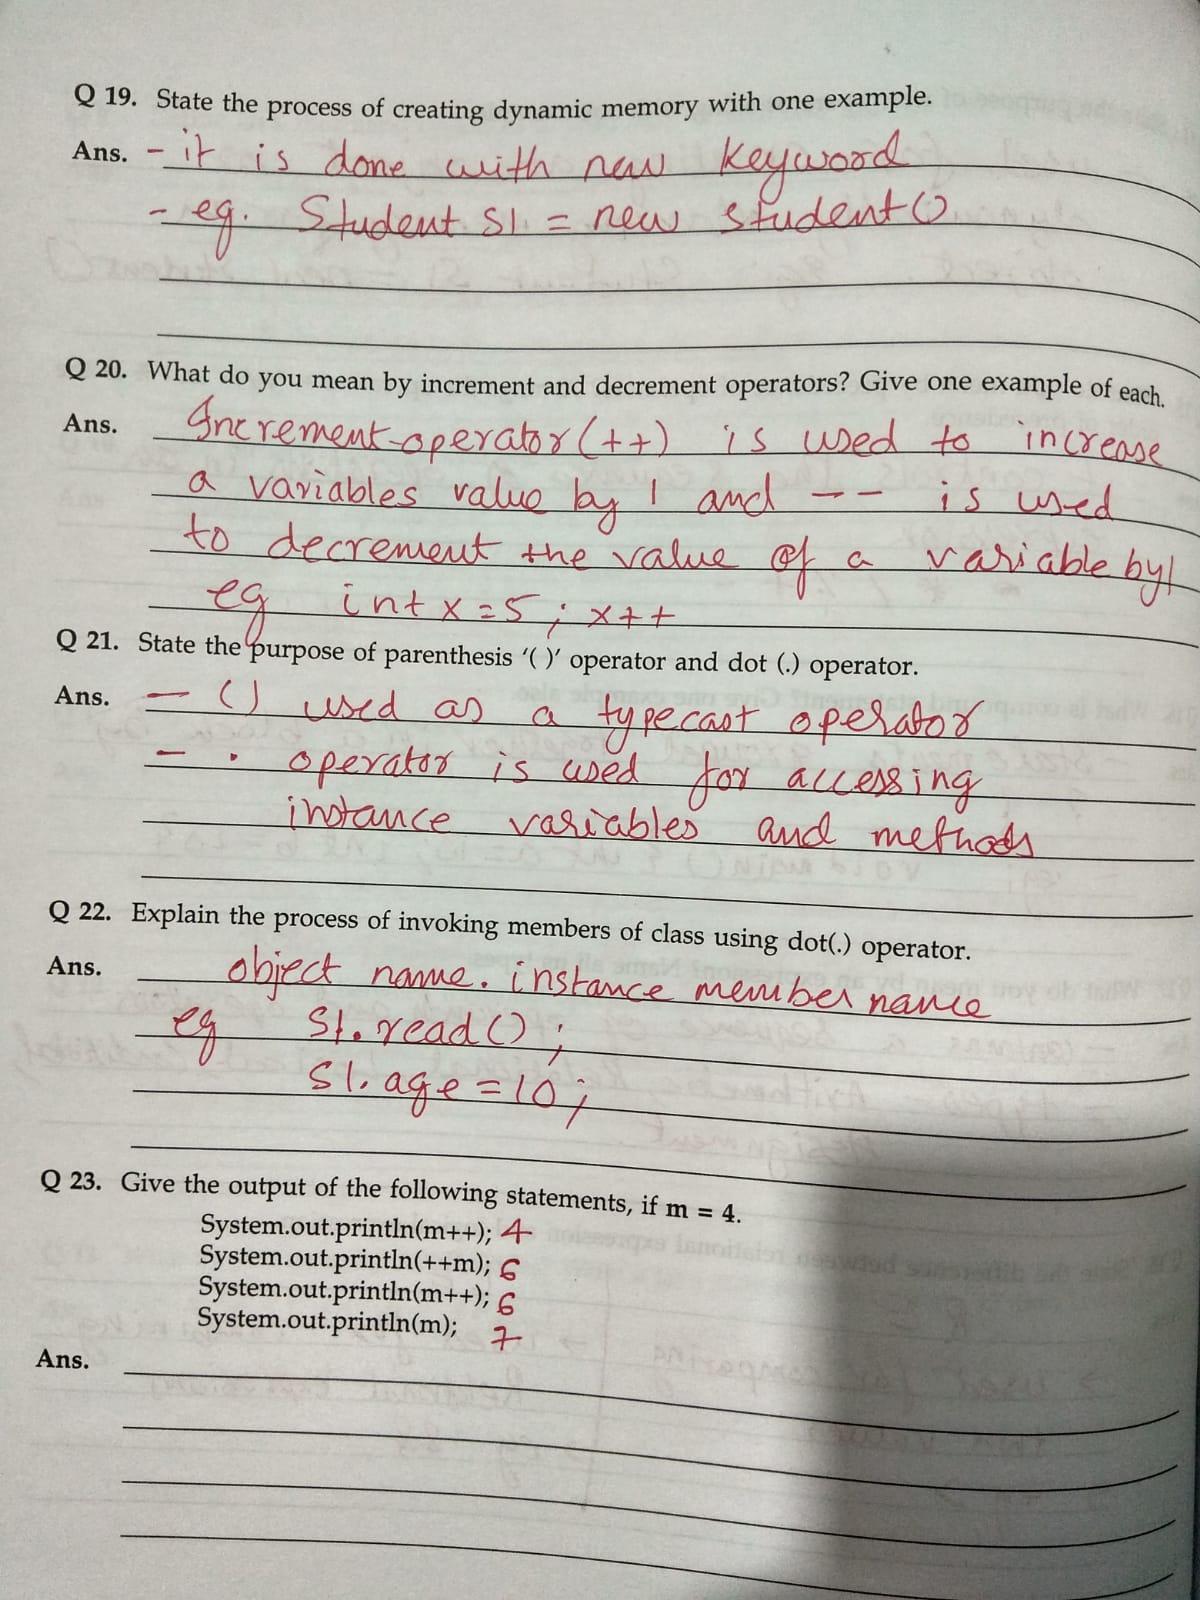 Q 19. State the process of creating dynamic memory with one example.
Ans. - it is done with new keyword
- eg. Student S1 = new student()
Q 20. What do you mean by increment and decrement operators? Give one example of each.
Ans. Increment operator (++) is used to increase
a variables value by 1 and -- is used
to decrement the value of a variable by 1
eg int x = 5 ; x++
Q 21. State the purpose of parenthesis '( )' operator and dot (.) operator.
Ans. - () used as a typecast operator
- . operator is used for accessing
instance variables and methods
Q 22. Explain the process of invoking members of class using dot(.) operator.
Ans. object name. instance member name
eg S1. read() ;
S1. age = 10 ;
Q 23. Give the output of the following statements, if m = 4.
System.out.println(m++); 4
System.out.println(++m); 6
System.out.println(m++); 6
System.out.println(m); 7
Ans.